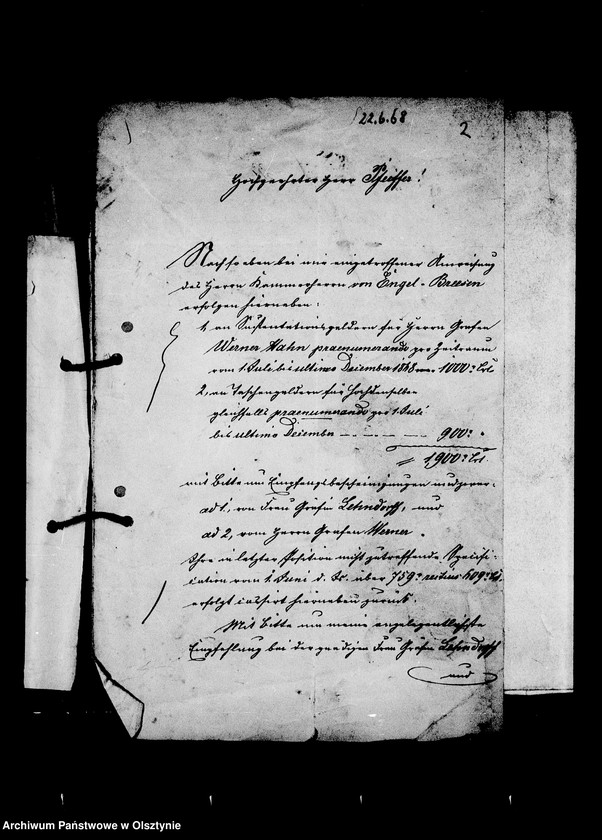 22.6.68
2
Hochgeehrter Herr Pfeiffer!
Nach so eben bei mir eingetroffener Anweisung
des Herrn Kammerherrn von Engel-Breesen
erfolgen hierneben:
1, an Sustentationsgeldern für Herrn Grafen
Werner Hahn praenumerando pro Zeitraum
vom 1 Juli bis ultimo Dezember 1868 1000
2, an Taschengeldern für Hochdenselben
gleichfalls praenumerando pro 1 Juli
bis ultimo Dezember 900
1900
mit Bitte um Empfangsbescheinigungen und zwar
ad 1, von Frau Gräfin Lehndorff, und
ad 2, vom Herrn Grafen Werner.
Ihre in letzter Position nicht zutreffende Specifi-
cation vom 1. Juni d. Js. über 759
erfolgt cassirt hierneben zurück.
Mit Bitte um meine angelegentlichste
Empfehlung bei der gnädigen Frau Gräfin Lehndorff
und
Archiwum Państwowe w Olsztynie